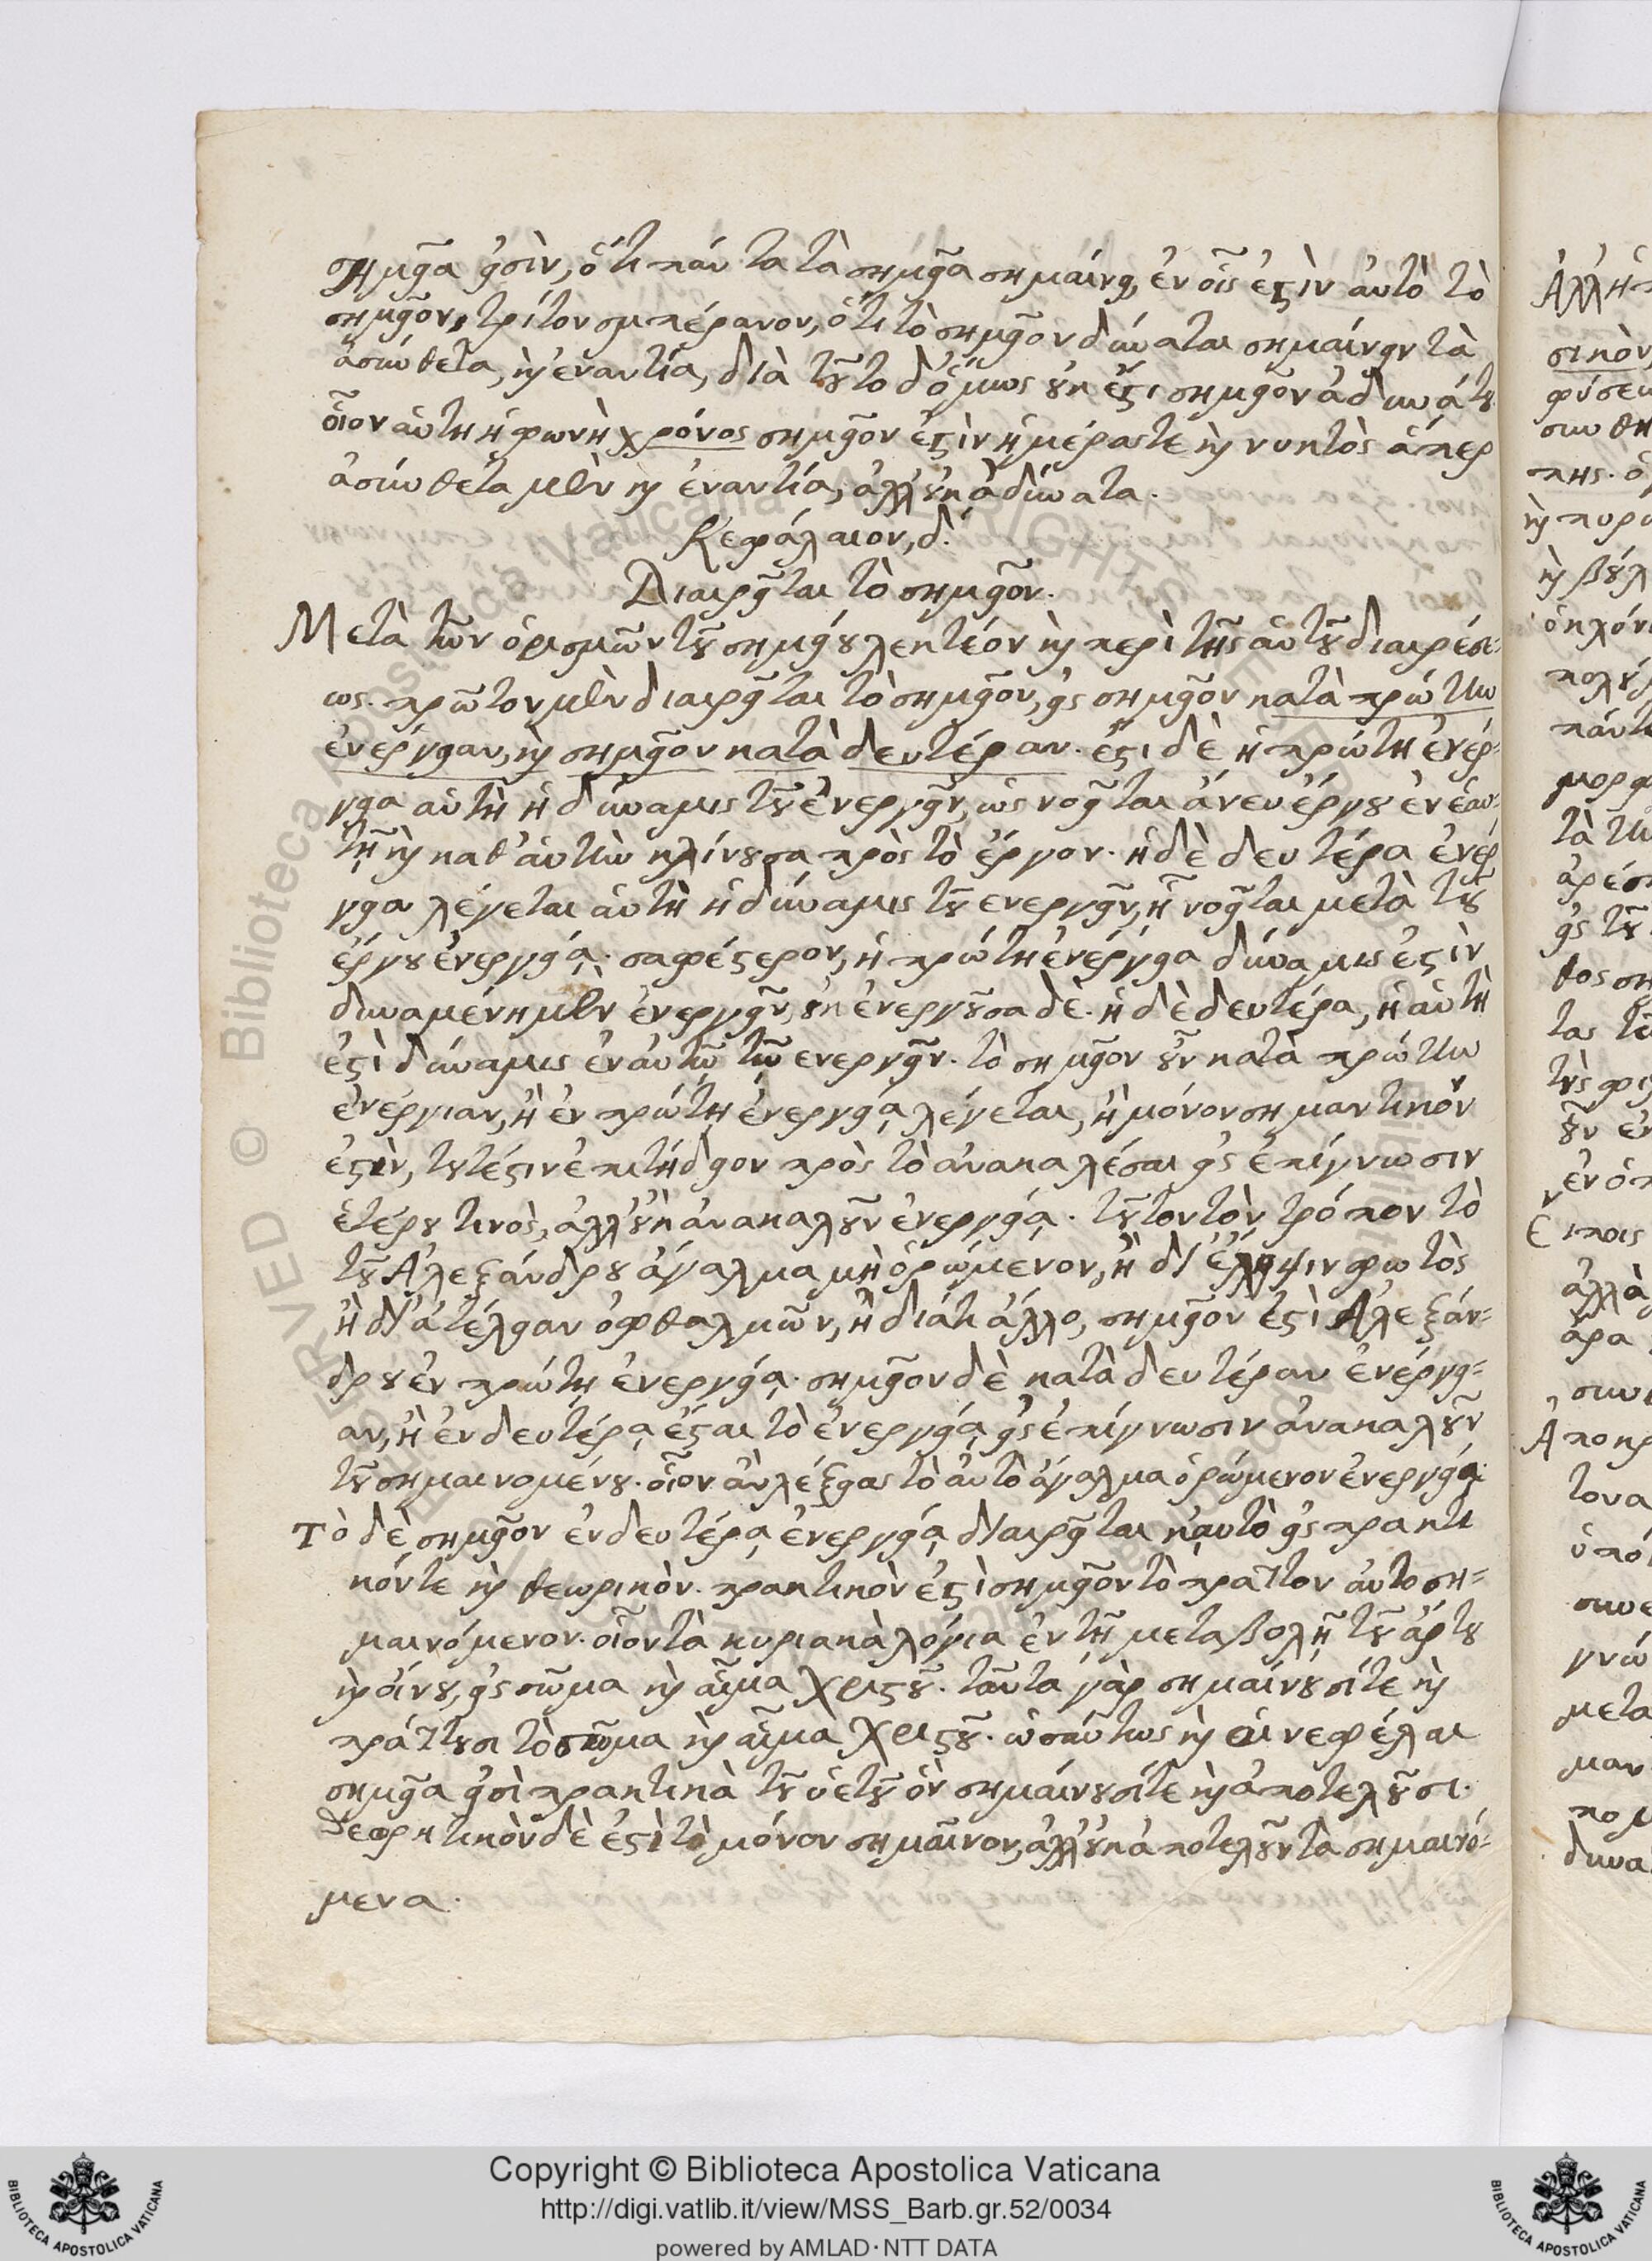 σημεῖα εἰσὶν, ὅτι πάντα τὰ σημεῖα σημαίνει, ἐν οἷς ἐστὶν ἀυτὸ τὸ
σημεῖον, τρίτον συμπέρανον, ὅτι τὸ σημεῖον δύναται σημαίνειν τὰ
ἀσύνθετα, καὶ ἐναντία, διὰ τοῦτο δ' ὅμως οὐκ ἔστι σημεῖον ἀδυνάτου
οἷον ἀυτη ἡ φωνὴ χρόνος σημεῖον ἐστὶν ἡμέρας τε καὶ νυκτὸς ἅπερ
ἀσύνθετα μὲν καὶ ἐναντία, ἀλλ' οὐκ ἀδύνατα.
Κεφάλαιον, δ'.
Διαιρεῖται τὸ σημεῖον.
Μετὰ τῶν ὁρισμῶν τοῦ σημείου λεκτέον καὶ περὶ τῆς ἀυτοῦ διαιρέσε-
ως. πρῶτον μὲν διαιρεῖται τὸ σημεῖον, εἰς σημεῖον κατὰ πρώτην
ἐνέργειαν, καὶ σημεῖον κατὰ δευτέραν. ἔστι δὲ ἡ πρώτη ἐνέρ-
γεια αὐτὴ ἡ δύναμις τοῦ ἐνεργεῖν, ὡς νοεῖται ἄνευ ἔργου ἐν ἑαυ-
τῇ καὶ καθ' ἁυτὴν κλίνουσα πρὸς τὸ ἔργον. ἡ δὲ δευτέρα ἐνέρ
γεια λέγεται ἀυτὴ ἡ δύναμις τοῦ ενεργεῖν, ἢ νοεῖται μετὰ τοῦ
ἔργου ἐνεργείᾳ. σαφέστερον, ἡ πρώτη ἐνέργεια δύναμις ἐστὶν
δυναμένη μὲν ἐνεργεῖν, οὐκ ἐνεργοῦσα δὲ. ἡ δὲ δευτέρα, ἡ ἀυτὴ
ἐστὶ δύναμις ἐν ἀυτῷ τῷ ενεργεῖν. τὸ σημεῖον οὖν κατὰ πρώτην
ἐνέργιαν, ἢ ἐν πρώτῃ ἐνεργείᾳ λέγεται, ἢ μόνον σημαντικόν
ἐστὶν, τουτέστιν ἐπιτήδειον πρὸς τὸ ἀνακαλέσαι εἰς ἐπίγνωσιν
ἑτέρου τινὸς, ἀλλ' οὐκ ἀνακαλοῦν ἐνεργείᾳ. τοῦτον τὸν τρόπον τὸ
τοῦ Ἀλεξάνδρου ἄγαλμα μὴ ὁρώμενον, ἢ δι' ἔλληψιν φωτὸς
ἢ δι' ἀτέλειαν ὀφθαλμῶν, ἢ διάτι ἄλλο, σημεῖον ἐστὶ Ἀλεξάν-
δρου ἐν πρώτῃ ἐνεργείᾳ. σημεῖον δὲ κατὰ δευτέραν ἐνέργει-
αν, ἢ ἐν δευτέρᾳ ἔσται τὸ ἐνεργείᾳ εἰς ἐπίγνωσιν ἀνακαλοῦν
τοῦ σημαινομένου. οἷον ἂν λέξειας τὸ ἀυτὸ ἄγαλμα ὁρώμενον ἐνεργείᾳ.
Τὸ δὲ σημεῖον ἐν δευτέρᾳ ἐνεργείᾳ διαιρεῖται κἀυτὸ εἰς πρακτι
κόντε καὶ θεωρικὸν. πρακτικὸν ἐστὶ σημεῖον τὸ πρᾶττον ἀυτο ση-
μαινόμενον. οἷον τὰ κυριακὰ λόγια ἐν τῇ μεταβολῇ τοῦ ἄρτου
καὶ ὀίνου, εἰς σῶμα καὶ αἷμα Χριστοῦ. ταῦτα γὰρ σημαίνουσίτε καὶ
πράττουσι τὸ σῶμα καὶ αἷμὰ Χριστοῦ. ὡσάυτως καὶ αἱ νεφέλαι
σημεῖα εἰσὶ πρακτικὰ τοῦ ὑετοῦ ὃν σημαίνουσίτε καὶ ἀποτελοῦσι.
Θεωρητικὸν δὲ ἐστὶ τὸ μόνον σημαῖνον, ἀλλ' οὐκ ἀποτελοῦν τὰ σημαινό-
μενα.
Copyright © Biblioteca Apostolica Vaticana
http://digi.vatlib.it/view/MSS_Barb.gr.52/0034
powered by AMLAD·NTT DATA